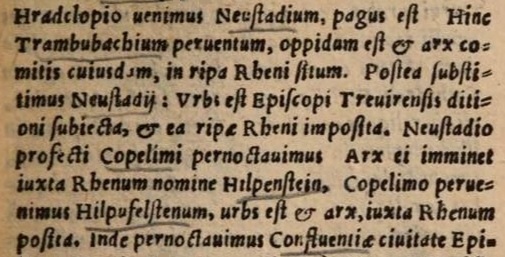 Hradclopio uenimus Neustadium, pagus est Hinc
Trambubachium peruentum, oppidum est & arx co=
mitis cuiusdam, in ripa Rheni situm. Postea substi=
timus Neustadij: Vrbs est Episcopi Treuirensis diti=
oni subiecta, & ea ripæ Rheni imposita. Neustadio
profecti Copelimi pernoctauimus Arx ei imminet
iuxta Rhenum nomine Hilpenstein, Copelimo perue=
nimus Hilpufelstenum, urbs est & arx, iuxta Rhenum
posita. Inde pernoctauimus Confluentiæ ciuitate Epi=